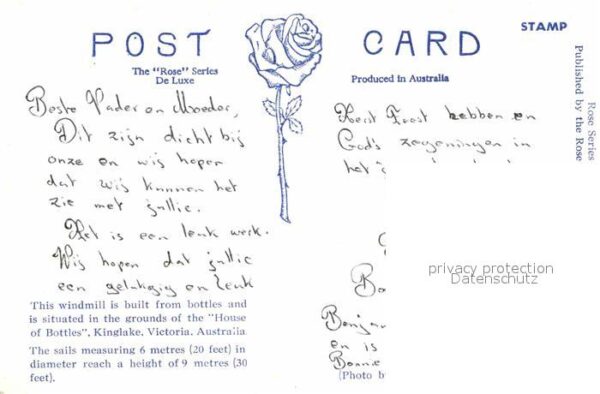 POST CARD
STAMP
The "Rose" Series
De Luxe
Produced in Australia
Rose Series
Published by the Rose
Beste Vader en Moeder,
Dit zijn dicht bij
onze en wij hopen
dat wij kunnen het
zie met jullie.
Het is een leuk werk.
Wij hopen dat jullie
een gelukgig en leuk
Kerst Feest hebben en
God's zegeningen in
het
Benja
en is
Bonnie
This windmill is built from bottles and
is situated in the grounds of the "House
of Bottles", Kinglake, Victoria, Australia
The sails measuring 6 metres (20 feet) in
diameter reach a height of 9 metres (30
feet).
(Photo b
privacy protection
Datenschutz